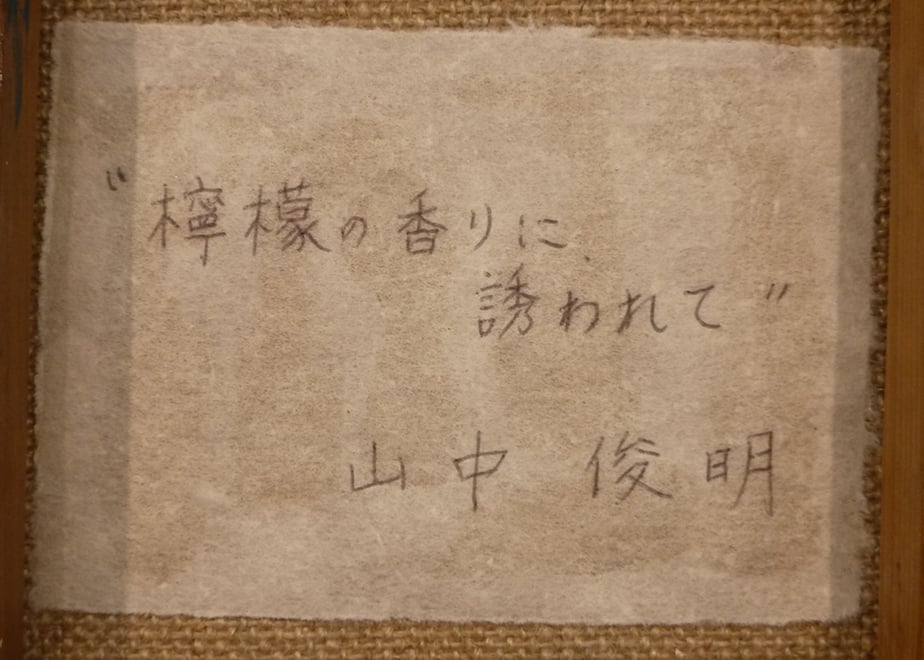 “檸檬の香りに
誘われて”
山中 俊明